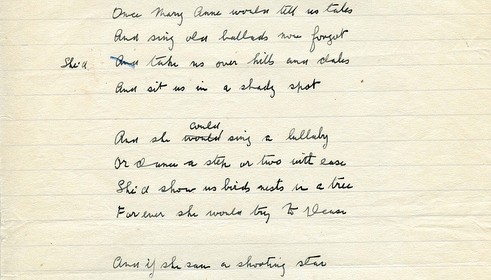 Once Mary Anne would tell us tales
And sing old ballads now forgot
She'd And take us over hills and dales
And sit us in a shady spot
could
And she would sing a lullaby
Or dance a step or two with ease
She'd show us birds nests in a tree
For ever she would try to please
And if she saw a shooting star